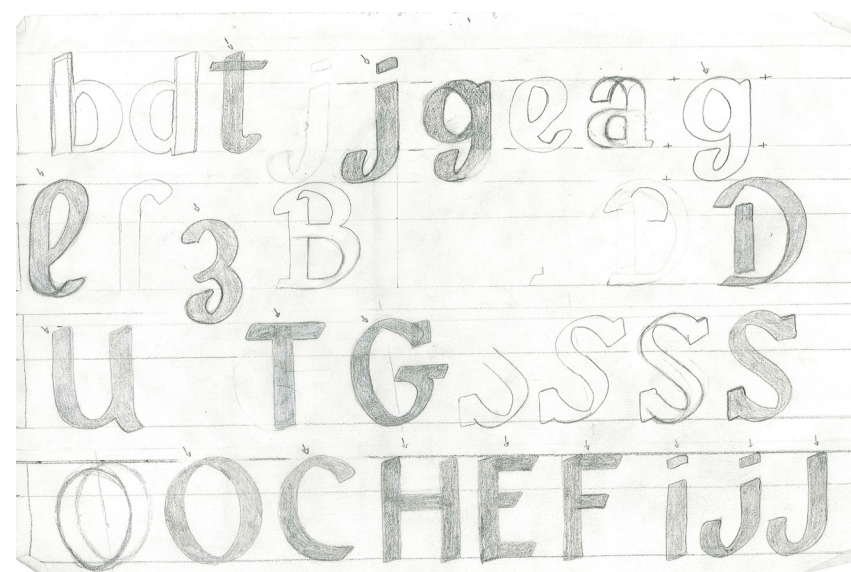 b d t j j g e a g
ℓ ſ 3 B D D
u T G S S S
O O C H E F i j J